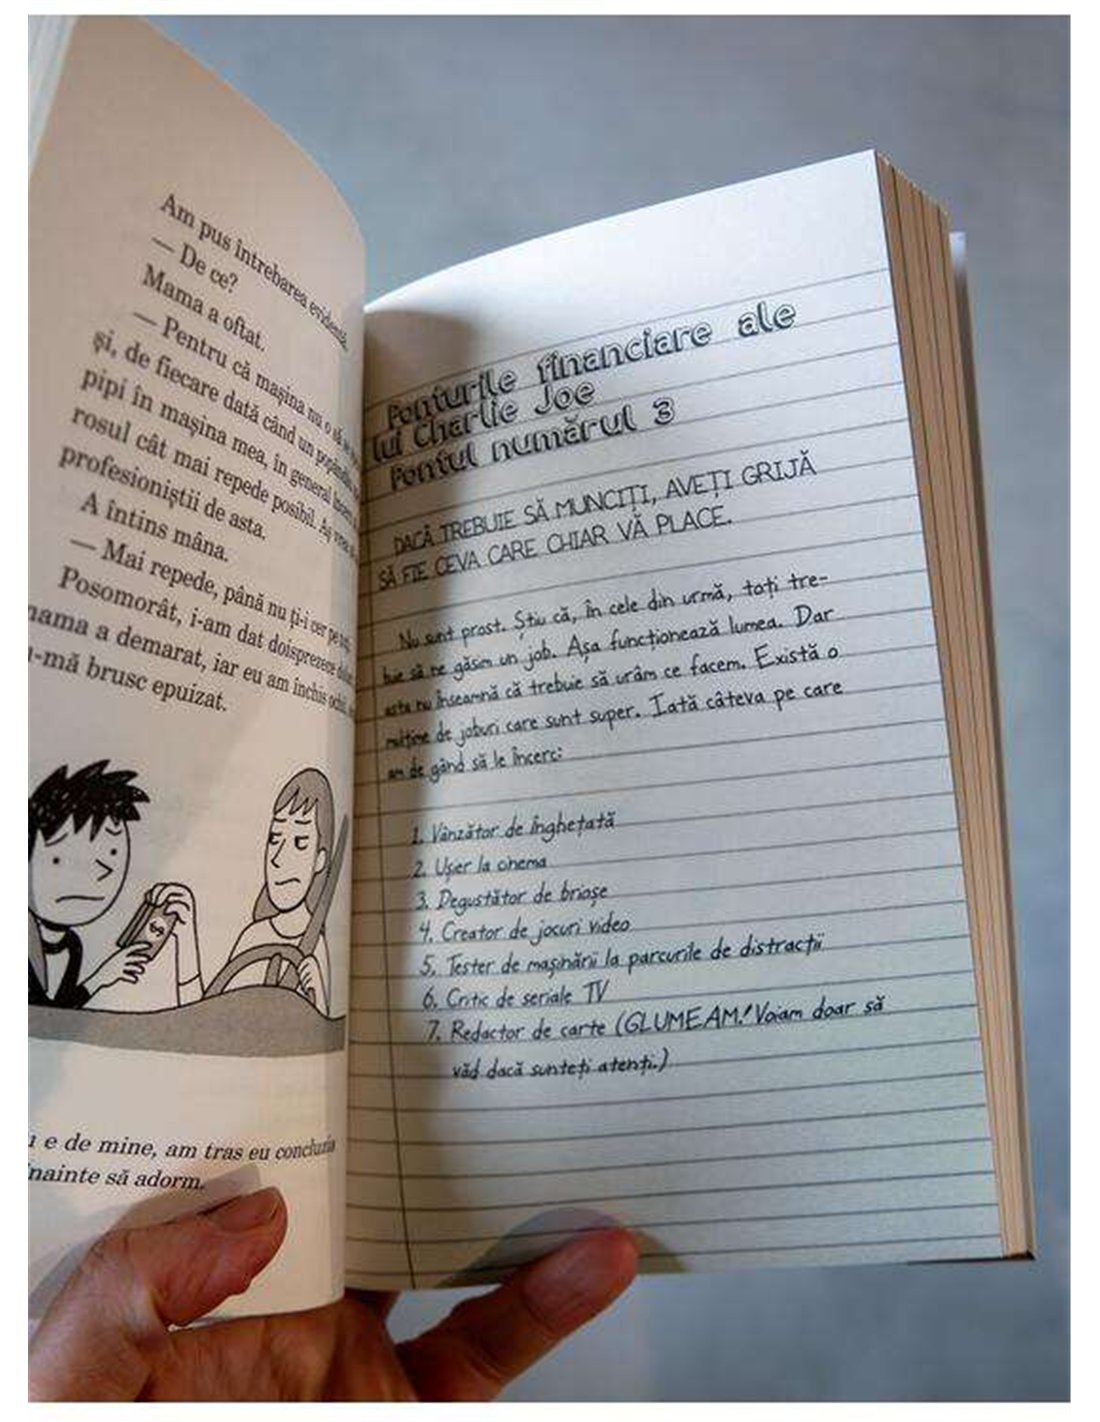 Am pus întrebarea evidentă.
— De ce?
Mama a oftat.
— Pentru că mașina nu o să se
și, de fiecare dată când un
pipi în mașina mea, în general încerc
rosul cât mai repede posibil. Aș vrea
profesioniștii de asta.
A întins mâna.
— Mai repede, până nu ți-i cer pe toți.
Posomorât, i-am dat doisprezece dolari
mama a demarat, iar eu am închis ochii,
-mă brusc epuizat.
$
e de mine, am tras eu concluzia
înainte să adorm.
Ponturile financiare ale
lui Charlie Joe
Pontul numărul 3
DACĂ TREBUIE SĂ MUNCIȚI, AVEȚI GRIJĂ
SĂ FIE CEVA CARE CHIAR VĂ PLACE.
Nu sunt prost. Știu că, în cele din urmă, toți tre-
buie să ne găsim un job. Așa funcționează lumea. Dar
asta nu înseamnă că trebuie să urâm ce facem. Există o
mulțime de joburi care sunt super. Iată câteva pe care
am de gând să le încerc:
1. Vânzător de înghețată
2. Ușier la cinema
3. Degustător de brioșe
4. Creator de jocuri video
5. Tester de mașinării la parcurile de distracții
6. Critic de seriale TV
7. Redactor de carte (GLUMEAM! Voiam doar să
văd dacă sunteți atenți.)